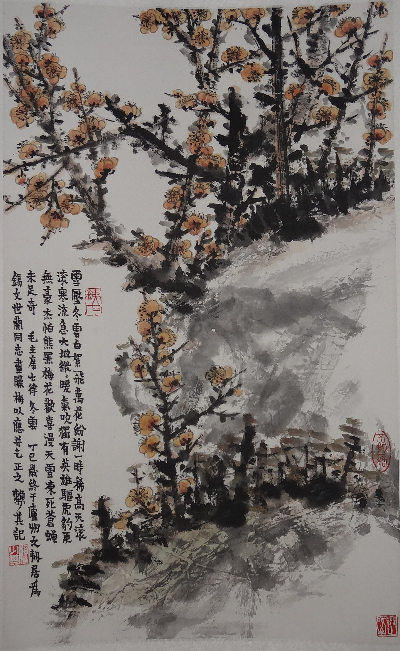 雪壓冬雲白絮飛萬花紛謝一時稀高天滾
滾寒流急大地微微暖氣吹獨有英雄驅虎豹更
無豪杰怕熊羆梅花歡喜漫天雪凍死蒼蠅
未足奇 毛主席七律冬雲 丁巳歲終于
文世蘭同志畫臘梅以應并乞正之 其記